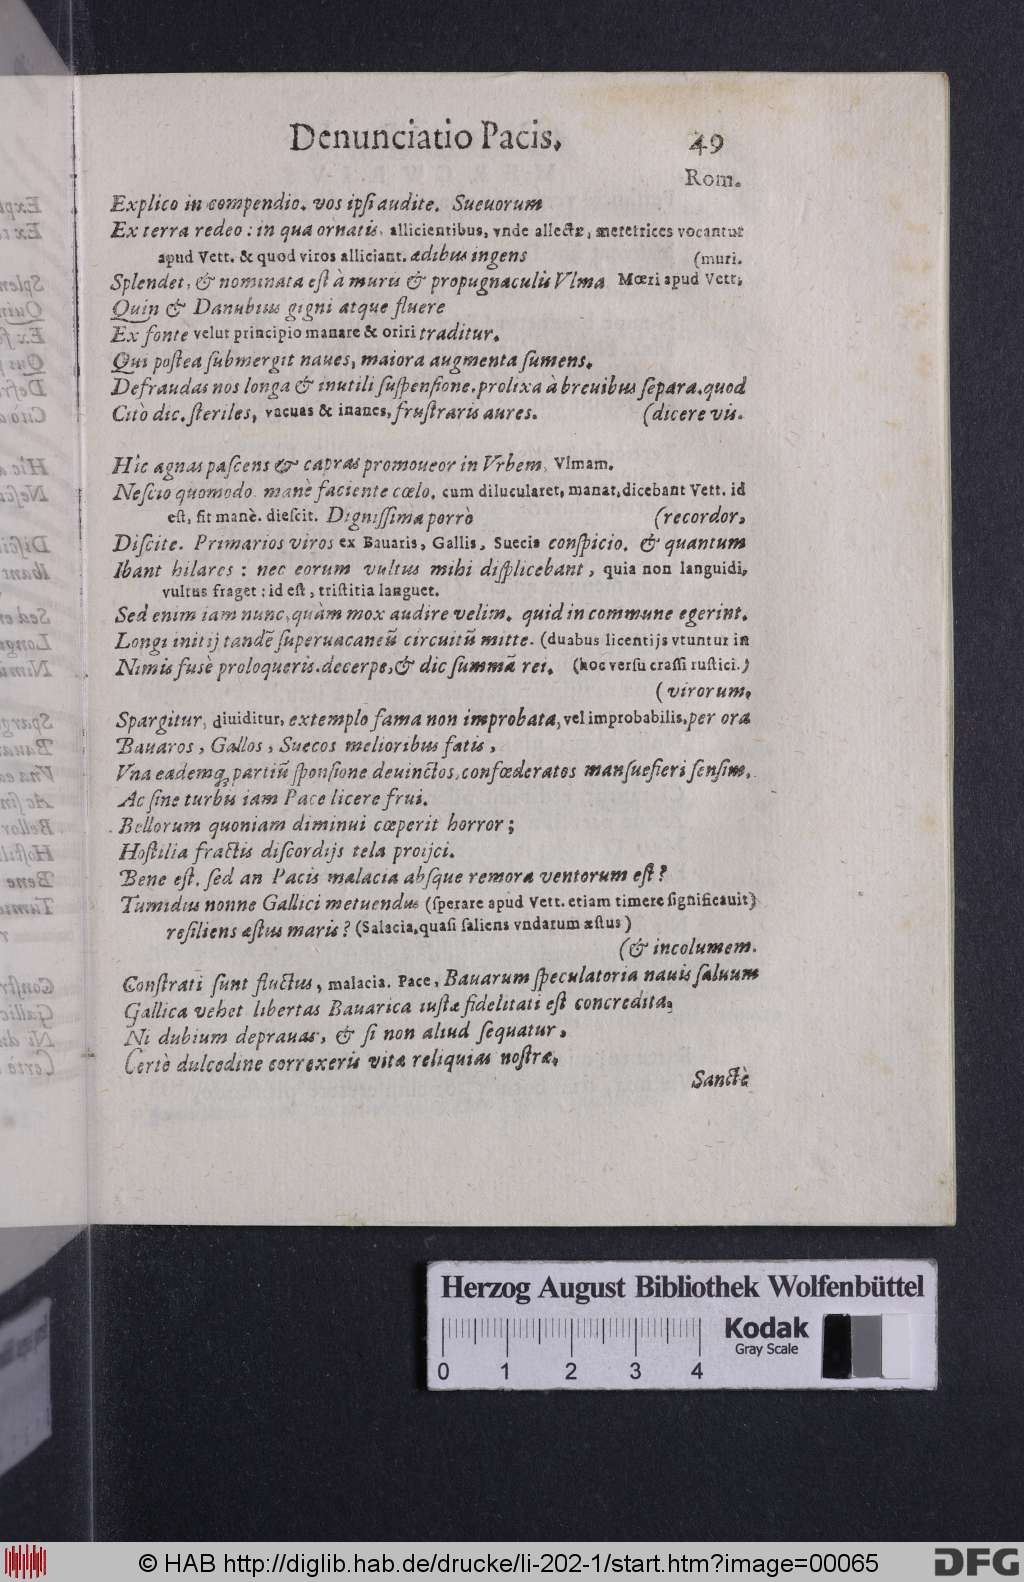 Denunciatio Pacis. 49
Rom.
Explico in compendio. vos ipſi audite. Sueuorum
Ex terra redeo: in qua ornatis, allicientibus, vnde allectæ, meretrices vocantur
apud Vett. & quod viros alliciant. ædibus ingens (muri.
Splendet, & nominata eſt à muris & propugnaculis Vlma Mœri apud Vett;
Quin & Danubius gigni atque fluere
Ex fonte velut principio manare & oriri traditur.
Qui poſtea ſubmergit naues, maiora augmenta ſumens.
Defraudas nos longa & inutili ſuſpenſione. prolixa à breuibus ſepara. quod
Citò dic. ſteriles, vacuas & inanes, fruſtraris aures. (dicere vis.
Hîc agnas paſcens & capras promoueor in Vrbem, Vlmam.
Neſcio quomodo manè faciente cœlo. cum dilucularet, manat, dicebant Vett. id
eſt, fit manè. dieſcit. Digniſſima porrò (recordor,
Diſcite. Primarios viros ex Bauaris, Gallis, Suecis conſpicio. & quantum
Ibant hilares: nec eorum vultus mihi diſplicebant, quia non languidi,
vultus fraget: id eſt, triſtitia languet.
Sed enim iam nunc, quàm mox audire velim. quid in commune egerint.
Longi initij tandẽ ſuperuacaneũ circuitũ mitte. (duabus licentijs vtuntur in
Nimis fusè proloqueris. decerpe, & dic ſummã rei. (hoc verſu craſſi ruſtici.)
(virorum,
Spargitur, diuiditur, extemplo fama non improbata, vel improbabilis, per ora
Bauaros, Gallos, Suecos melioribus fatis,
Vna eademq; partiũ ſponſione deuinctos, confœderatos manſuefieri ſenſim,
Ac ſine turbis iam Pace licere frui.
Bellorum quoniam diminui cœperit horror;
Hoſtilia fractis diſcordijs tela proijci.
Bene eſt. ſed an Pacis malacia absque remora ventorum eſt?
Tumidus nonne Gallici metuendus (ſperare apud Vett. etiam timere ſignificauit)
reſiliens æſtus maris? (Salacia, quaſi ſaliens vndarum æſtus)
(& incolumem.
Conſtrati ſunt fluctus, malacia. Pace, Bauarum ſpeculatoria nauis ſaluum
Gallica vehet libertas Bauarica iuſtæ fidelitati eſt concredita,
Ni dubium deprauas, & ſi non aliud ſequatur,
Certè dulcedine correxeris vitæ reliquias noſtræ,
Sanctè
Herzog August Bibliothek Wolfenbüttel
0 1 2 3 4
Kodak
Gray Scale
© HAB http://diglib.hab.de/drucke/li-202-1/start.htm?image=00065
DFG